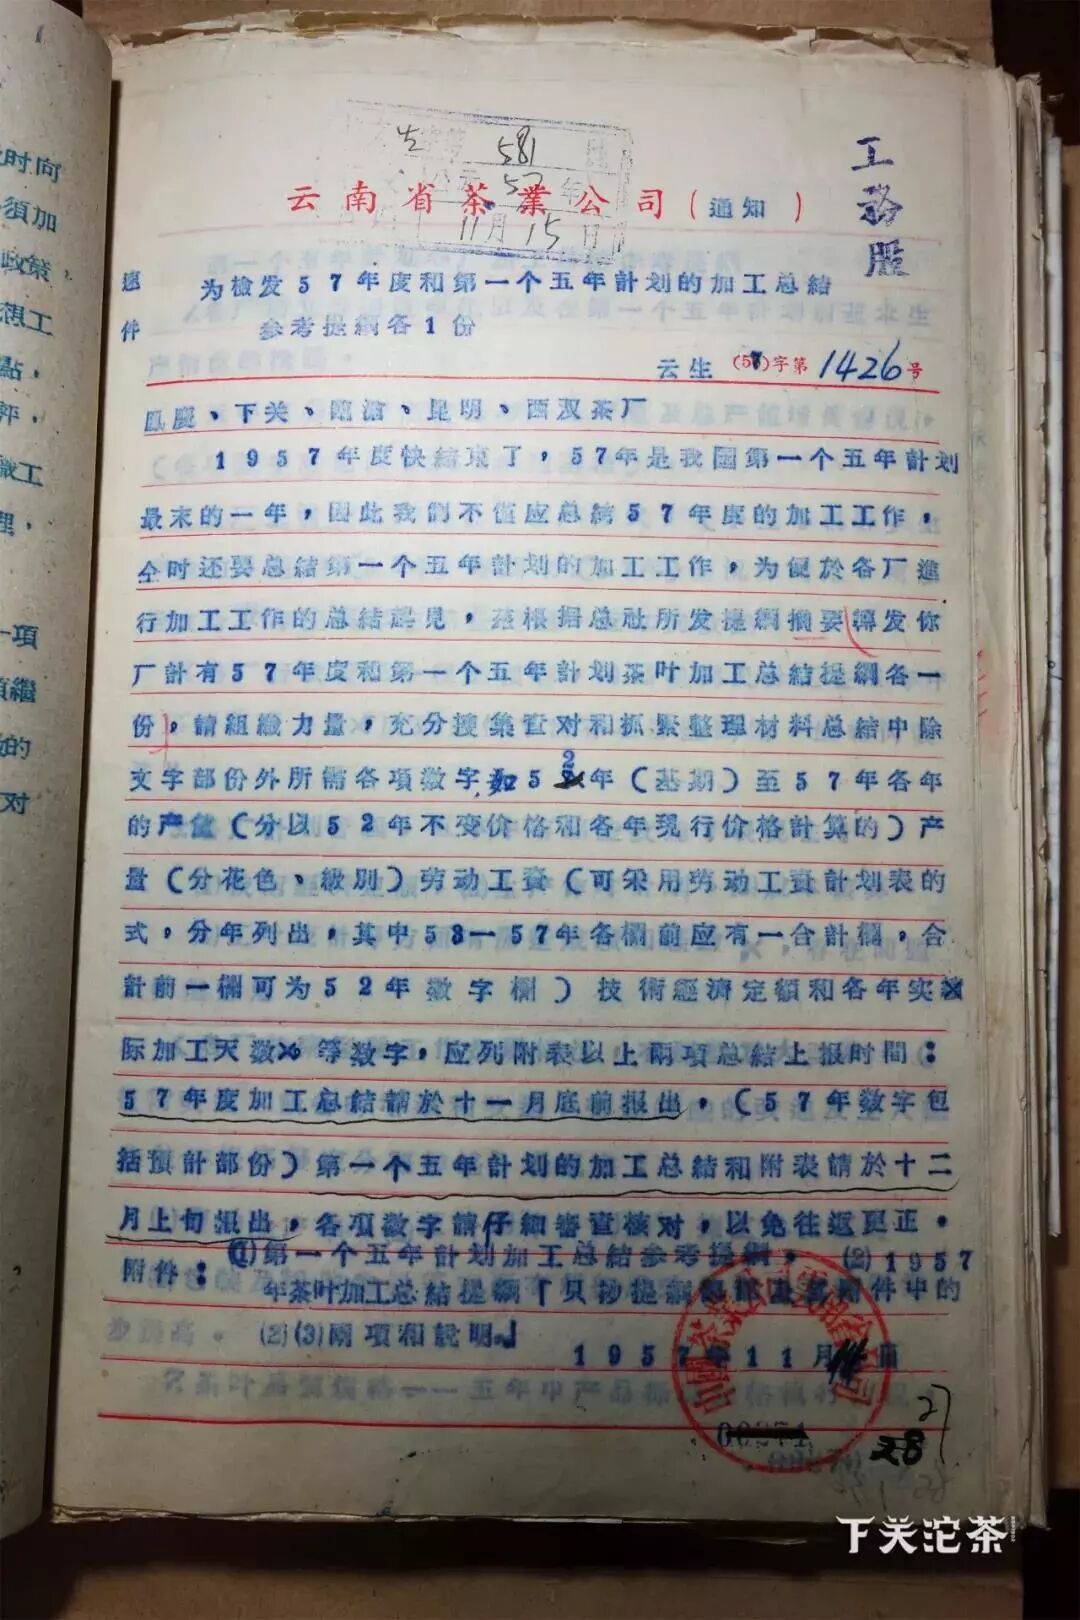 时向
须加
政策，
想工
點，
评，
工
理，
一項
須繼
的
对
生 581
57年
11月15日
工务股
云南省茶業公司（通知）
速件
为檢发57年度和第一个五年計划的加工总結
参考提綱各1份
云生(57)字第1426号
鳳慶、下关、临滄、昆明、西双茶厂
1957年度快結束了，57年是我国第一个五年計划
最末的一年，因此我們不僅应总結57年度的加工工作，
仝时还要总結第一个五年計划的加工工作，为便於各厂進
行加工工作的总結起見，茲根据总社所发提綱摘要轉发你
厂計有57年度和第一个五年計划茶叶加工总結提綱各一
份，請組織力量，充分搜集查对和抓緊整理材料总結中除
文字部份外所需各項数字，如52年（基期）至57年各年
的产值（分以52年不变价格和各年现行价格計算的）产
量（分花色、級別）劳动工資（可采用劳动工資計划表的
式，分年列出，其中53—57年各欄前应有一合計欄，合
計前一欄可为52年数字欄）技術經濟定額和各年实
际加工天数等数字，应列附表以上兩項总結上报时間：
57年度加工总結請於十一月底前报出，（57年数字包
括預計部份）第一个五年計划的加工总結和附表請於十二
月上旬报出，各項数字請仔細審查核对，以免往返更正。
附件：(1)第一个五年計划加工总結参考提綱。(2)1957
年茶叶加工总結提綱「只抄提綱 附件中的
(2)(3)兩項和説明」
1957年11月 日
27
28
下关沱茶